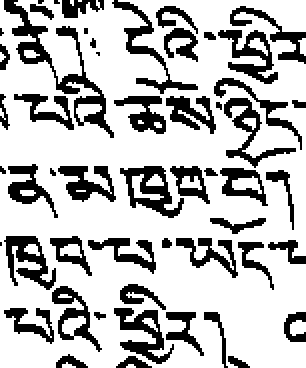 ནི། དེའི་ཕྱིར
པའི་ཆོས་ཉིད
ན་མ་ཁྱབ་པ།
ཁྱབ་པ་ཡོད་པ
པའི་ཕྱིར།